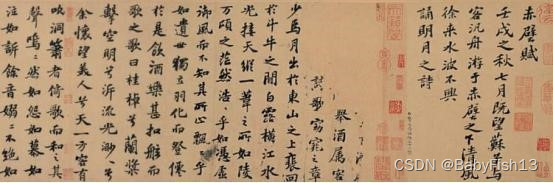 赤壁賦
壬戌之秋七月既望蘇
客泛舟游于赤壁之下清風
徐來水波不興
誦明月之詩
舉酒屬客
歌窈窕之章
少焉月出於東山之上裵回
於斗牛之間白露橫江水
光接天縱一葦之所如陵
萬頃之茫然浩乎如憑虛
御風而不知其所止飄乎
如遺世獨立羽化而登僊
於是飲酒樂甚扣舷而
歌之歌曰桂棹兮蘭槳
擊空明兮泝流光渺兮
余懷望美人兮天一方客有
吹洞簫者倚歌而和之其
聲嗚嗚然如怨如慕如
泣如訴餘音嫋嫋不絕如
CSDN @BabyFish13